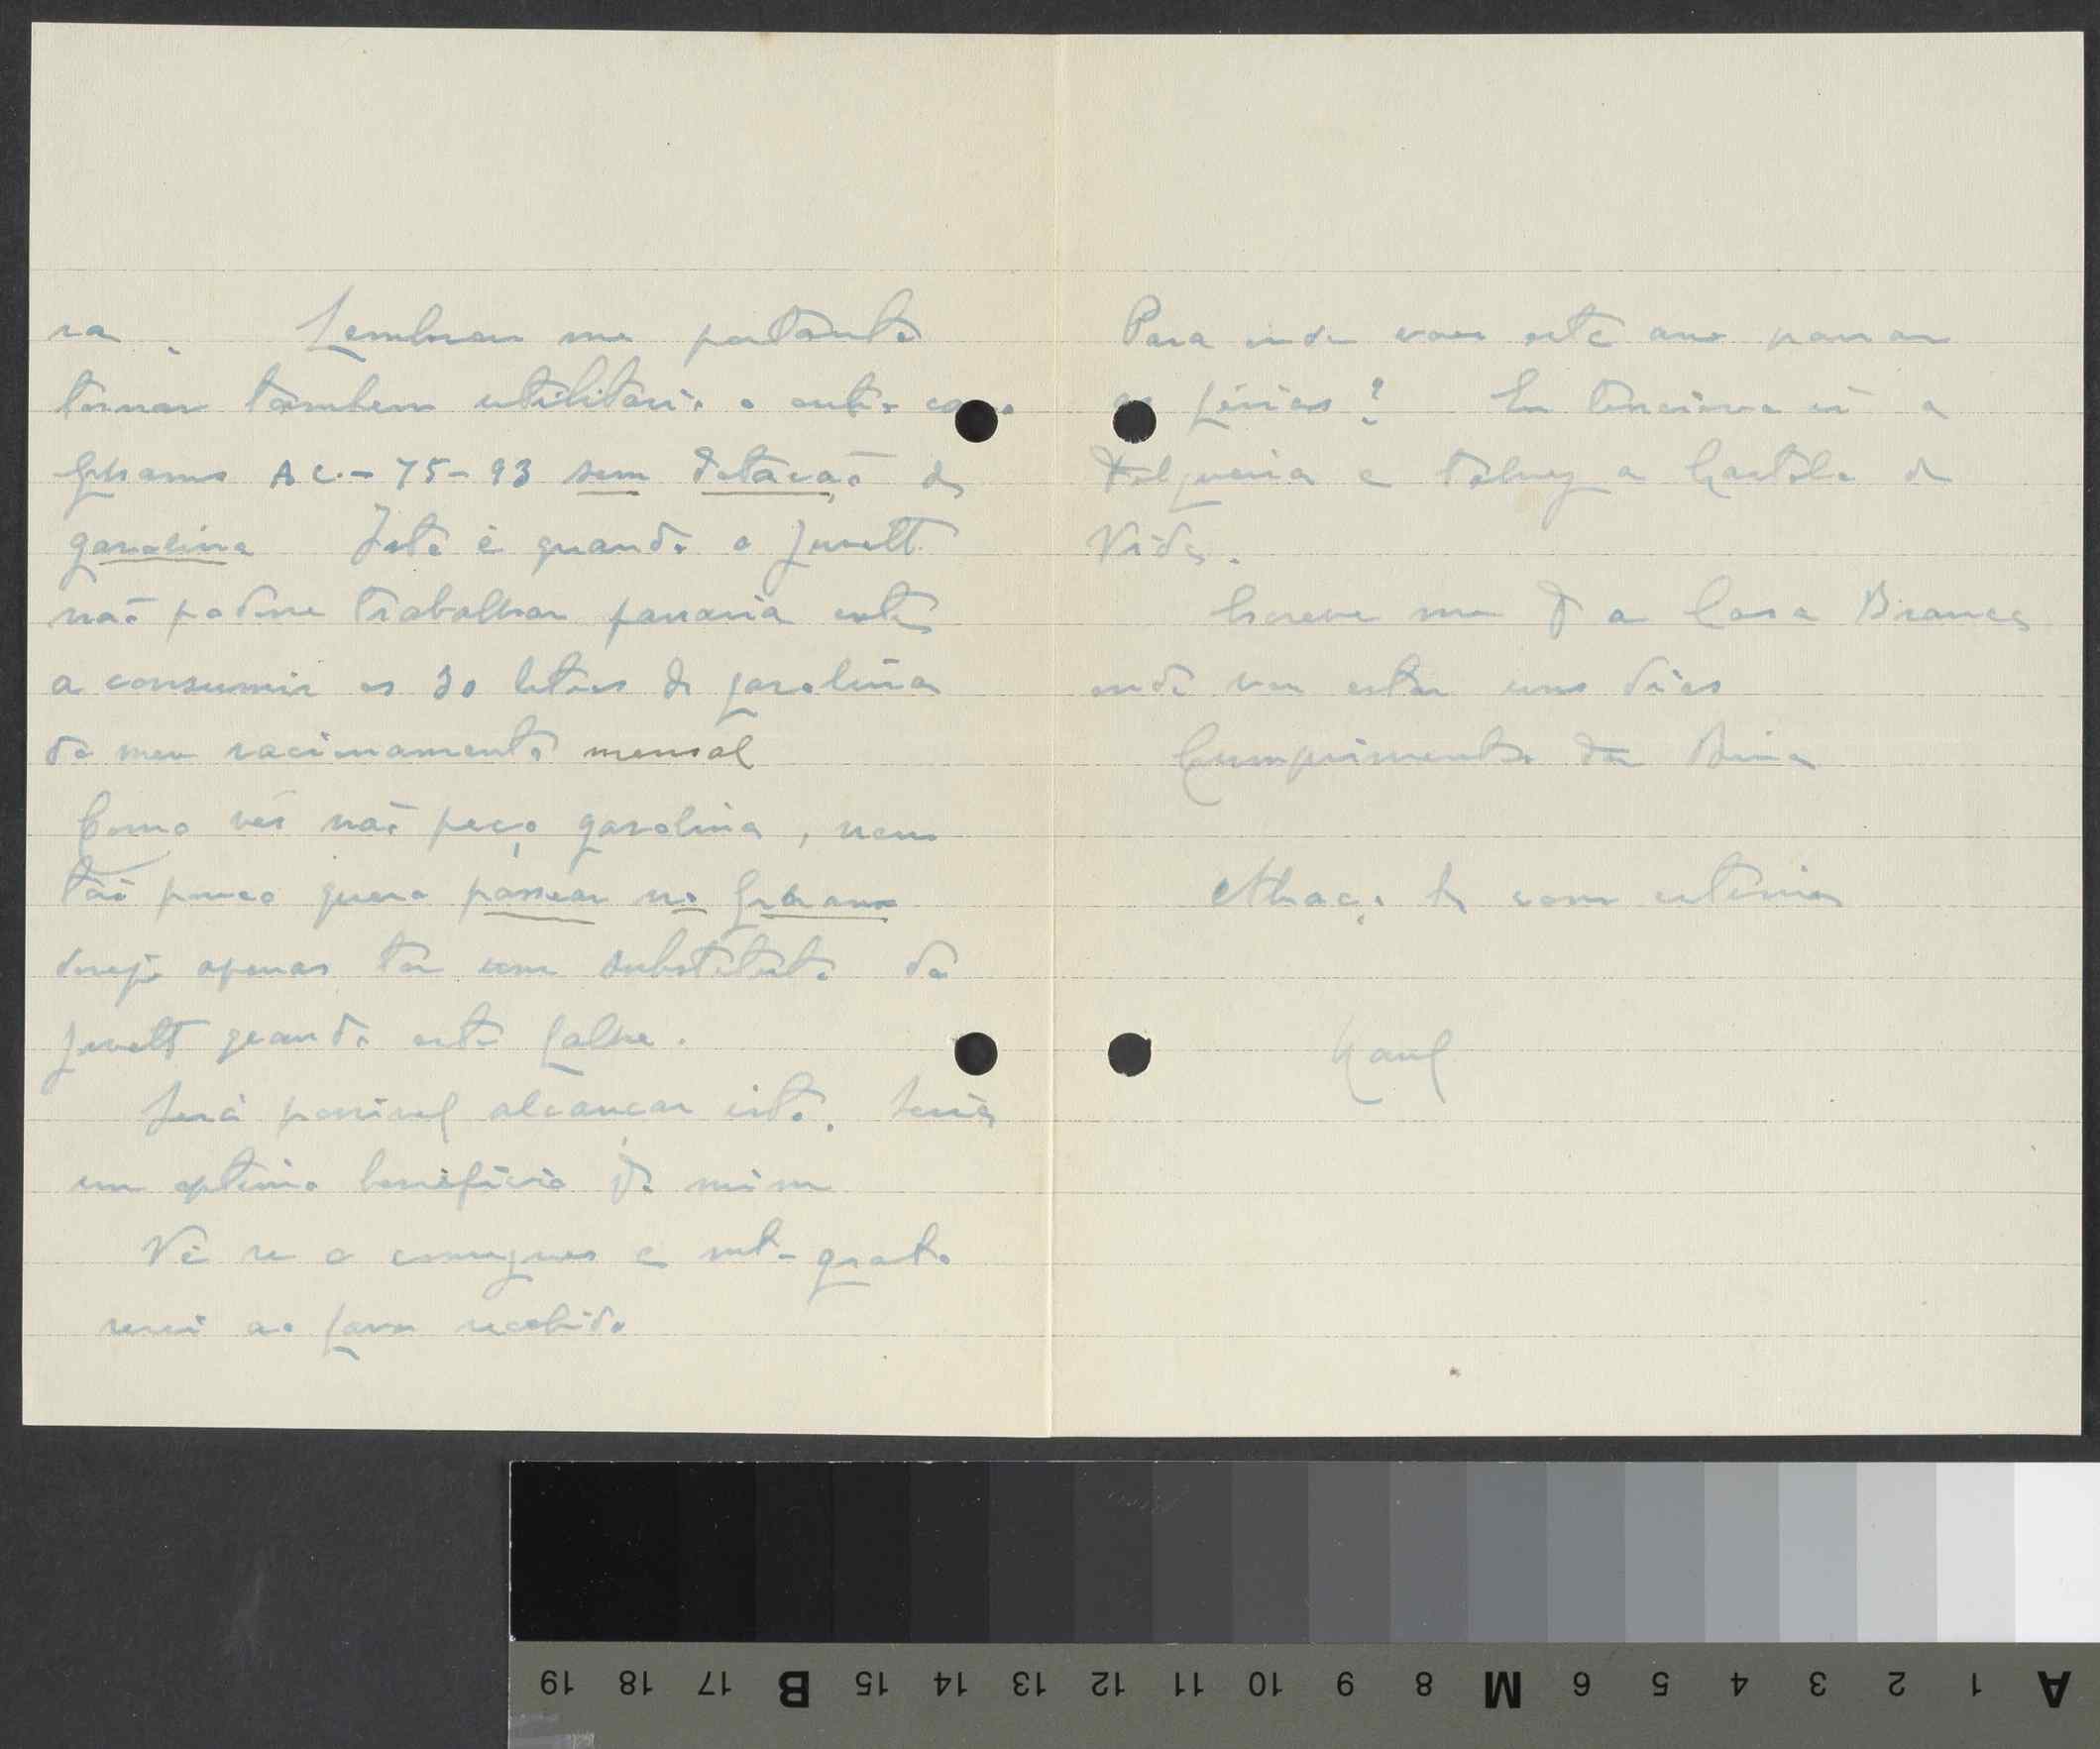 ra. Lembrou me portanto
tornar tambem utilitario o outro carro
Grhams AC.- 75-93 sem dotação de
gasolina Isto é quando o Jowett
não podesse trabalhar passaria este
a consumir os 30 litros de gasolina
do meu racionamento mensal
Como vês não peço gasolina, nem
tão pouco quero passear no Graham
desejo apenas ter um substituto do
Jowett quando este falhe.
Será possivel alcançar isto. Seria
um optimo beneficio pª mim
Vê se o consegues e mtº grato
serei ao favor recebido
Para onde vaes este ano passar
as férias? Eu tenciono ir a
Felgueira e talvez a Castelo de
Vide.
Escreve me pª a Casa Branca
onde vou estar uns dias
Cumprimentos da Bina
Abraço te com estima
Raul
19 18 17 B 15 14 13 12 11 10 9 8 M 6 5 4 3 2 1 A